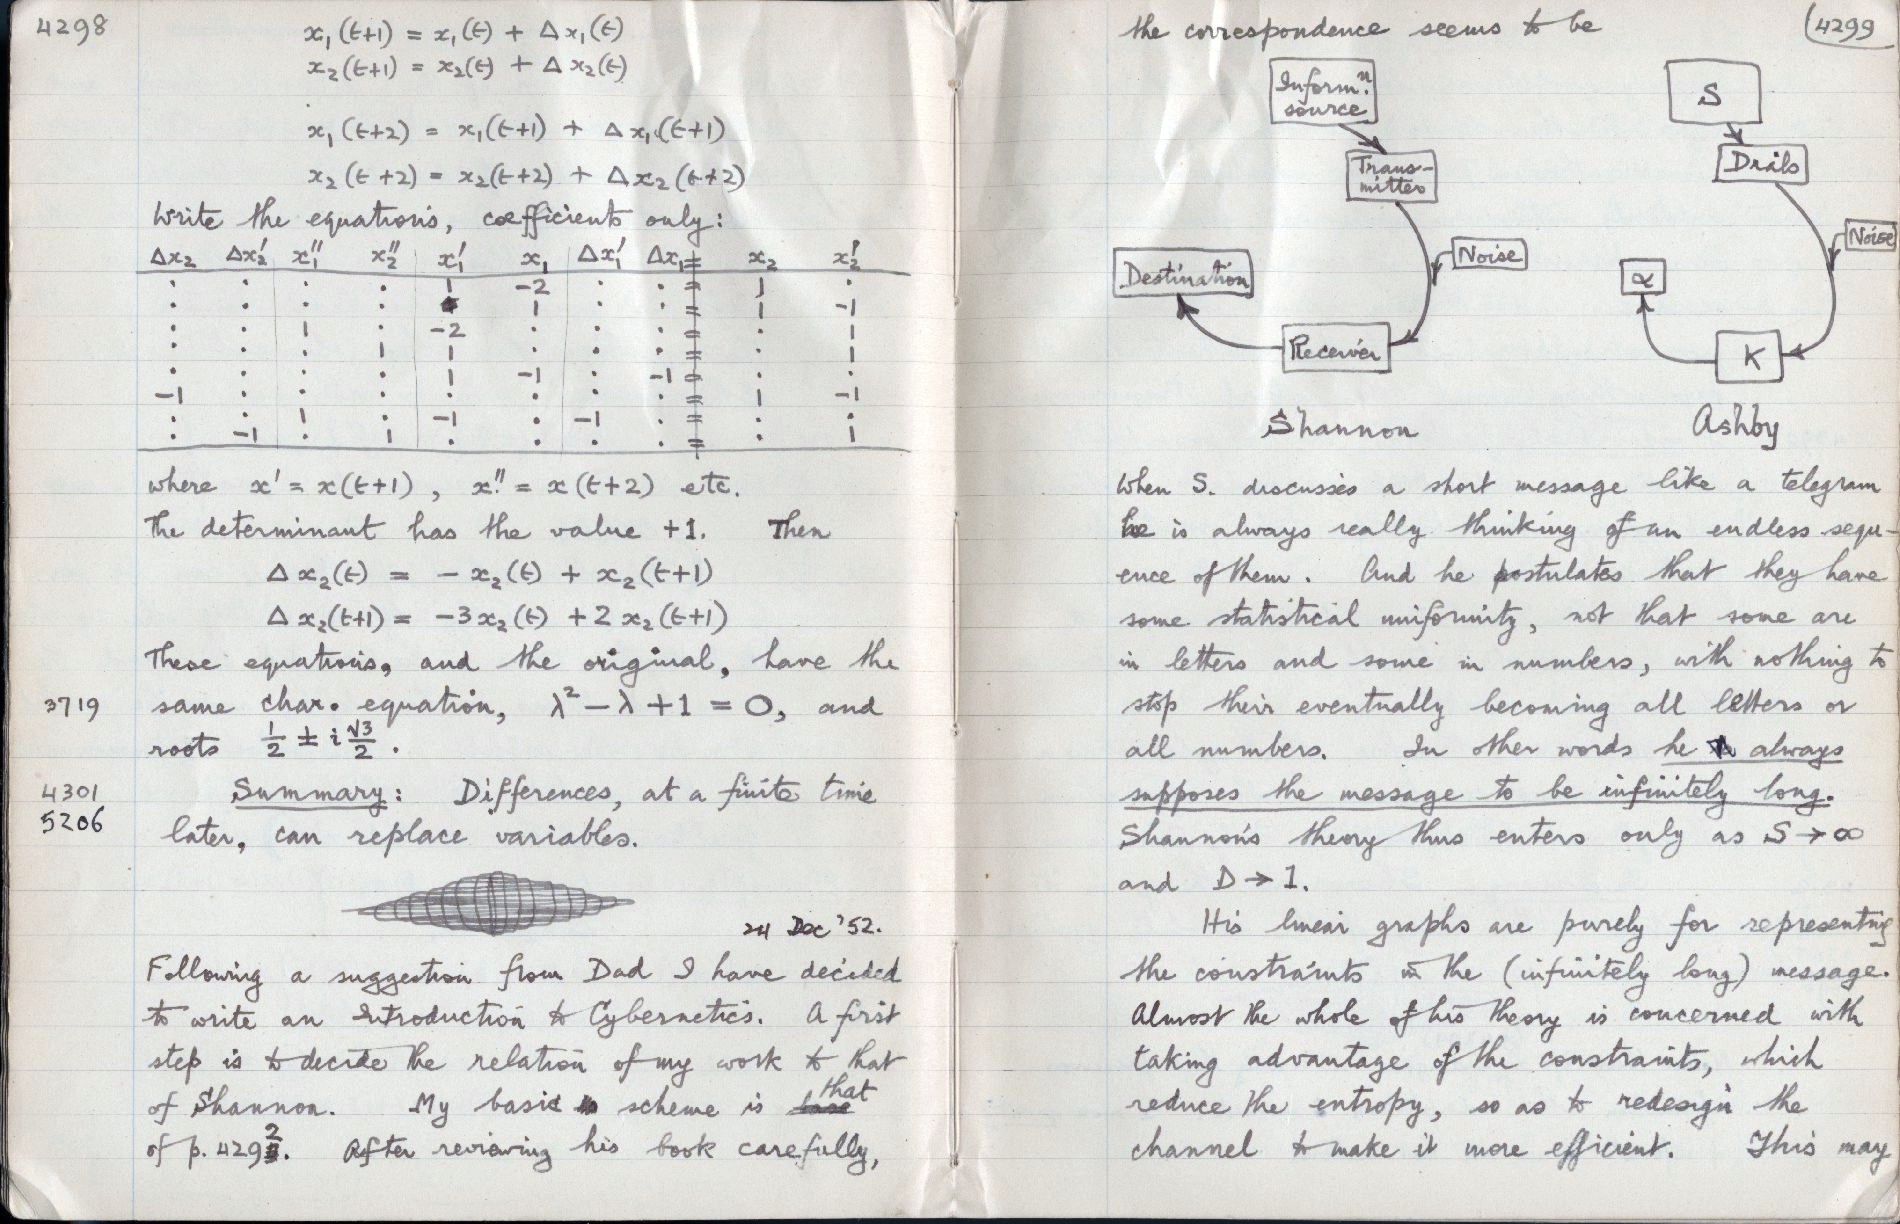 4298
x₁(t+1) = x₁(t) + Δx₁(t)
x₂(t+1) = x₂(t) + Δx₂(t)
x₁(t+2) = x₁(t+1) + Δx₁(t+1)
x₂(t+2) = x₂(t+2) + Δx₂(t+2)
Write the equations, coefficients only:
Δx₂ Δx₂' x₁'' x₂'' x₁' x₁ Δx₁' Δx₁ = x₂ x₂'
. . . . 1 -2 . . = 1 .
. . . . . 1 . . = 1 -1
. . 1 . -2 . . . = . 1
. . . 1 1 . . . = . 1
. . . . 1 -1 . -1 = . .
-1 . . . . . . . = 1 -1
. . 1 . -1 . -1 . = . .
. -1 . 1 . . . . = . 1
where x' = x(t+1), x'' = x(t+2) etc.
The determinant has the value +1. Then
Δx₂(t) = -x₂(t) + x₂(t+1)
Δx₂(t+1) = -3x₂(t) + 2x₂(t+1)
These equations, and the original, have the
3719 same char. equation, λ² - λ + 1 = 0, and
roots 1/2 ± i √3/2.
4301 Summary: Differences, at a finite time
5206 later, can replace variables.
24 Dec '52.
Following a suggestion from Dad I have decided
to write an Introduction to Cybernetics. A first
step is to decide the relation of my work to that
of Shannon. My basic scheme is that
of p. 4292. After reviewing his book carefully,
4299
the correspondence seems to be
Inform.ⁿ
source
Trans-
mitter
Noise
Destination
Receiver
Shannon
S
Dials
Noise
α
K
Ashby
When S. discusses a short message like a telegram
he is always really thinking of an endless sequ-
ence of them. And he postulates that they have
some statistical uniformity, not that some are
in letters and some in numbers, with nothing to
stop their eventually becoming all letters or
all numbers. In other words he always
supposes the message to be infinitely long.
Shannon's theory thus enters only as S → ∞
and D → 1.
His linear graphs are purely for representing
the constraints in the (infinitely long) message.
Almost the whole of his theory is concerned with
taking advantage of the constraints, which
reduce the entropy, so as to redesign the
channel to make it more efficient. This may